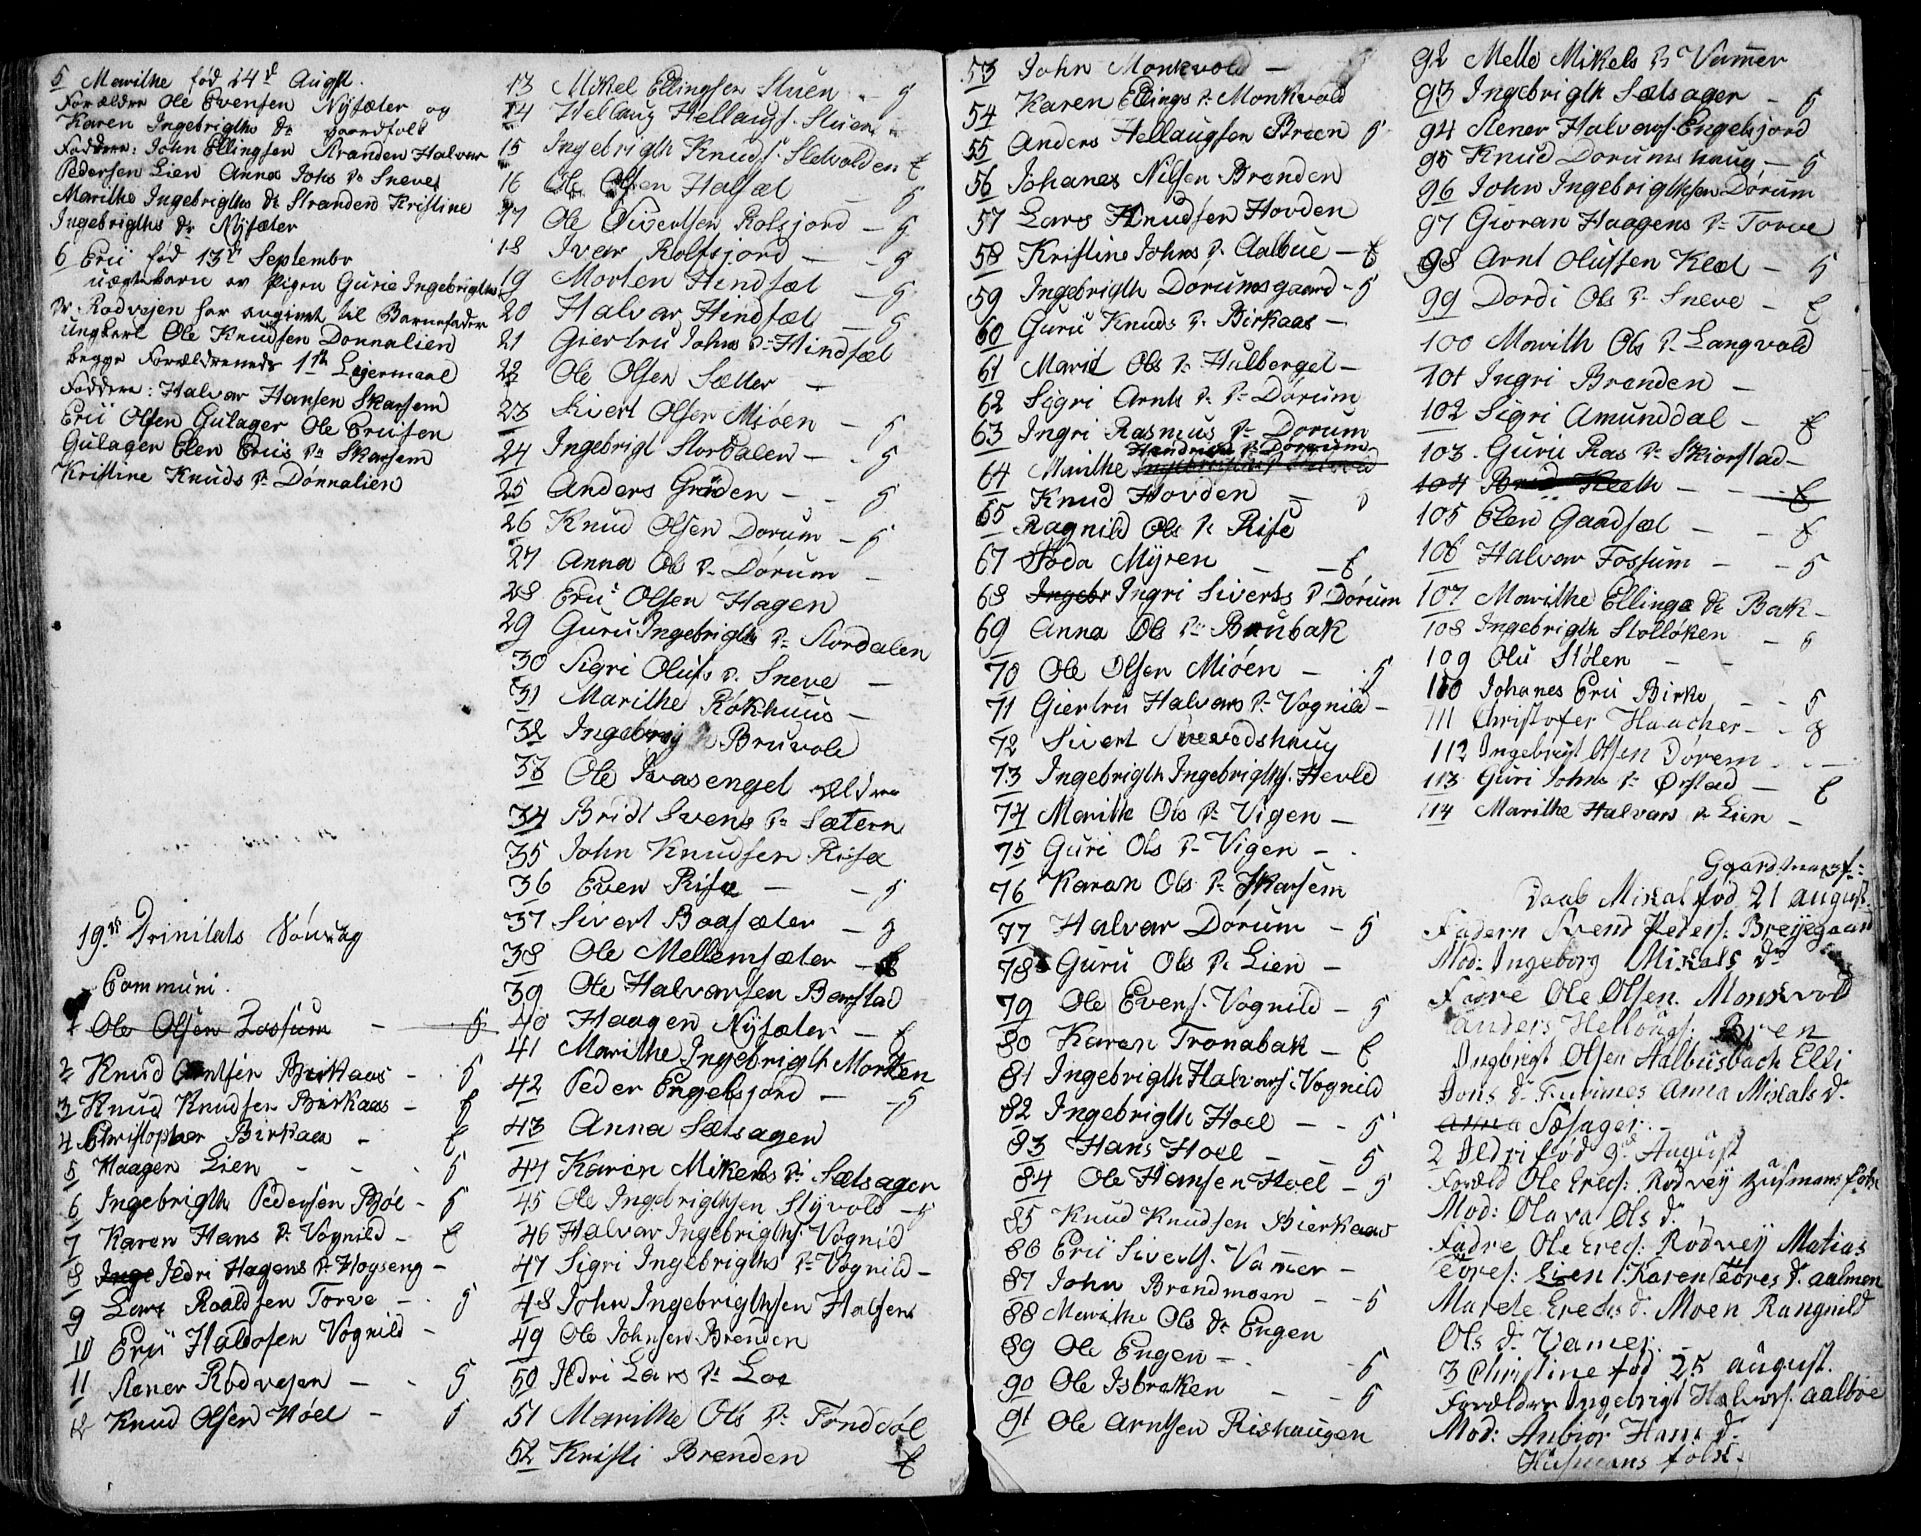 5 Marithe fød 14d Augst.
Forældre Ole Evensen Nysæter og
Karen Ingebrigths Dr gaardfolk
Faddere: John Ellingsen Stranden Halvar
Pedersen Lien Anna Johs Dr Sneve
Marithe Ingebrigths Dr Stranden Kristine
Ingebrigths Dr Nysæter
6 Erii fød 13d Septembr
uægte barn av Pigen Guria Ingebrigths
Dr. Rødvejen har angivet til Barnefader
Ungkarl Ole Knudsen Donnalien
begge Forældrenes 1ste Lejermaal
Faddere: Halvar Hansen Skarsem
Erii Olsen Gulager Ole Eriisen
Gulager Elen Eriis Dr Skarsem
Kristine Knuds Dr Dønnalien
19de Trinitats Søndag
Communi.
1 Ole Olsen Fossum - 5
2 Knud Arntsen Birkaas - 5
3 Knud Knudsen Birkaas - f
4 Christopher Birkaas - f
5 Haagen Lien - - - 5
6 Ingebrigth Pedersen Bøe - 5
7 Karen Hans Dr Vognild - f
8 Inge Ildri Hagens Dr Hoyseng -
9 Lars Roaldsen Torve - 5
10 Erii Haldosen Vognild -
11 Stener Rødvejen - - 5
12 Knud Olsen Hoel - 5
13 Mikel Ellingsen Stuen - 5
14 Hellaug Hellaugs. Stuen
15 Ingebrigth Knuds. Sletvolden f
16 Ole Olsen Halsæt - 5
17 Ole Sivertsen Rolsjord - 5
18 Ivar Rolfsjord - - 5
19 Morten Hindsæt - 5
20 Halvar Hindsæt - 5
21 Giertru Johns Dr Hindsæt
22 Ole Olsen Sætter -
23 Sivert Olsen Mjøen - 5
24 Ingebrigt Stordalen - - 5
25 Anders Grøden - - 5
26 Knud Olsen Dorum - 5
27 Anna Ols Dr Dørum -
28 Erii Olsen Hagen
29 Guru Ingebrigths Dr Stordalen
30 Sigri Olufs Dr Sneve -
31 Marithe Røkhuus -
32 Ingebrigth Bruvold
33 Ole Ivasenget ældre
34 Bridt Svens Dr Sætern
35 John Knudsen Rise
36 Even Rise - - 5
37 Sivert Baasæter - 5
38 Ole Mellemsæter - f
39 Ole Halvarsen Barstad
40 Haagen Nysæter - f
41 Marithe Ingebrigth Morken
42 Peder Engelsjord - - 5
43 Anna Sætsagen
44 Karen Mikels Dr Sætsager
45 Ole Ingebrigthsen Styvold - 5
46 Halvar Ingebrigths. Vognild
47 Sigri Ingebrigths Dr Vognild -
48 John Ingebrigthsen Halsens
49 Ole Johnsen Brenden
50 Ildri Lars Dr Loe
51 Marithe Ols Dr Tønddøl
52 Kristi Brenden f
53 John Monkvold -
54 Karen Ellings Dr Monkvold
55 Anders Hellaugsen Breen 5
56 Johanes Nilsen Brenden
57 Lars Knudsen Hovden
58 Kristine Johns Dr Aalbue - f
59 Ingebrigth Dørumsgaard - 5
60 Guru Knuds Dr Birkaas -
61 Marid Ols Dr Hulberget -
62 Sigri Arnts Dr Dr Dørum
63 Ingri Rasmus Dr Dorum
Handriks Dr Dørrum
64 Marithe
65 Knud Hovden -
Ragnild Ols Dr Rise
67 Soda Myren - - f
68 Ingebr Ingri Siverts Dr Dørum
69 Anna Ols Dr Brubak
70 Ole Olsen Miøen - 5
71 Giertru Halvars Dr Vognild -
72 Sivert Snevedshaug
73 Ingebrigth Ingebrigths. Hevle
74 Marithe Ols Dr Vigen -
75 Guri Ols Dr Vigen -
76 Karan Ols Dr Skarsem
77 Halvar Dorum - 5
78 Guru Ols Dr Lien -
79 Ole Evens. Vognild - 5
80 Karan Tronabak - f
81 Ingebrigth Halvars. Vognild
82 Ingebrigth Hoel - - 5
83 Hans Hoel - - 5
84 Ole Hansen Hoel - 5
85 Knud Knudsen Bierkaas
86 Erii Siverts. Vammer -
87 John Brendmoen - - 5
88 Marithe Ols Dr Engen
89 Ole Engen - - 5
90 Ole Isbreken - - 5
91 Ole Arntsen Rishaugen
92 Mette Mikels Dr Vammer
93 Ingebrigth Sætsager - 5
94 Stener Halvars. Engelsjord
95 Knud Dorumshaug - 5
96 John Ingebrigthsen Dørum
97 Gioran Haagens Dr Torve
98 Arnt Olufsen Klet - 5
99 Dordi Ols Dr Sneve - f
100 Marith Ols Dr Langvold
101 Ingri Brenden -
102 Sigri Amunddal - f
103 Guru Ras Dr Skiorstad -
104 - - f
105 Elen Gaadsæt - - f
106 Halvar Fossum - - 5
107 Marithe Ellings Dr Bak -
108 Ingebrigth Stølløken - 5
109 Olu Stølen - -
110 Johanes Erii Birke - - 5
111 Christofer Haacher - - 5
112 Ingebrigt Olsen Dorem - - -
113 Guri Johns Dr Ørstad - f
114 Marithe Halvars Dr Lien -
Gaardmansf:
Daab Mikal fød 21 august
Fadern Svend Peders: Breyegaan
Mod: Ingeborg Mikals Dr
Fadre Ole Olsen. Monkvold
anders Hellougs: Bren
Ingbrigt Olsen Aalbusbach Elli
Jons Dr Furunes Anna Mikals D.
anna Sæsager. -
2 Ildri fød 9d August
Foræld Ole Ereks: Rødvey Husmansfolk
Mod: Olava Ols D.
Fadre Ole Ereks: Rødvey Matias
Tores: Lien Karen Tores D. aalmen
Marete Ereks D. Moen Rangnild
Ols D. Vamer. -
3 Christine fød 25 august.
Forældre Ingebrigt Halvors. aalboe
Mod: Anbior Hans D.
Husmans folk.